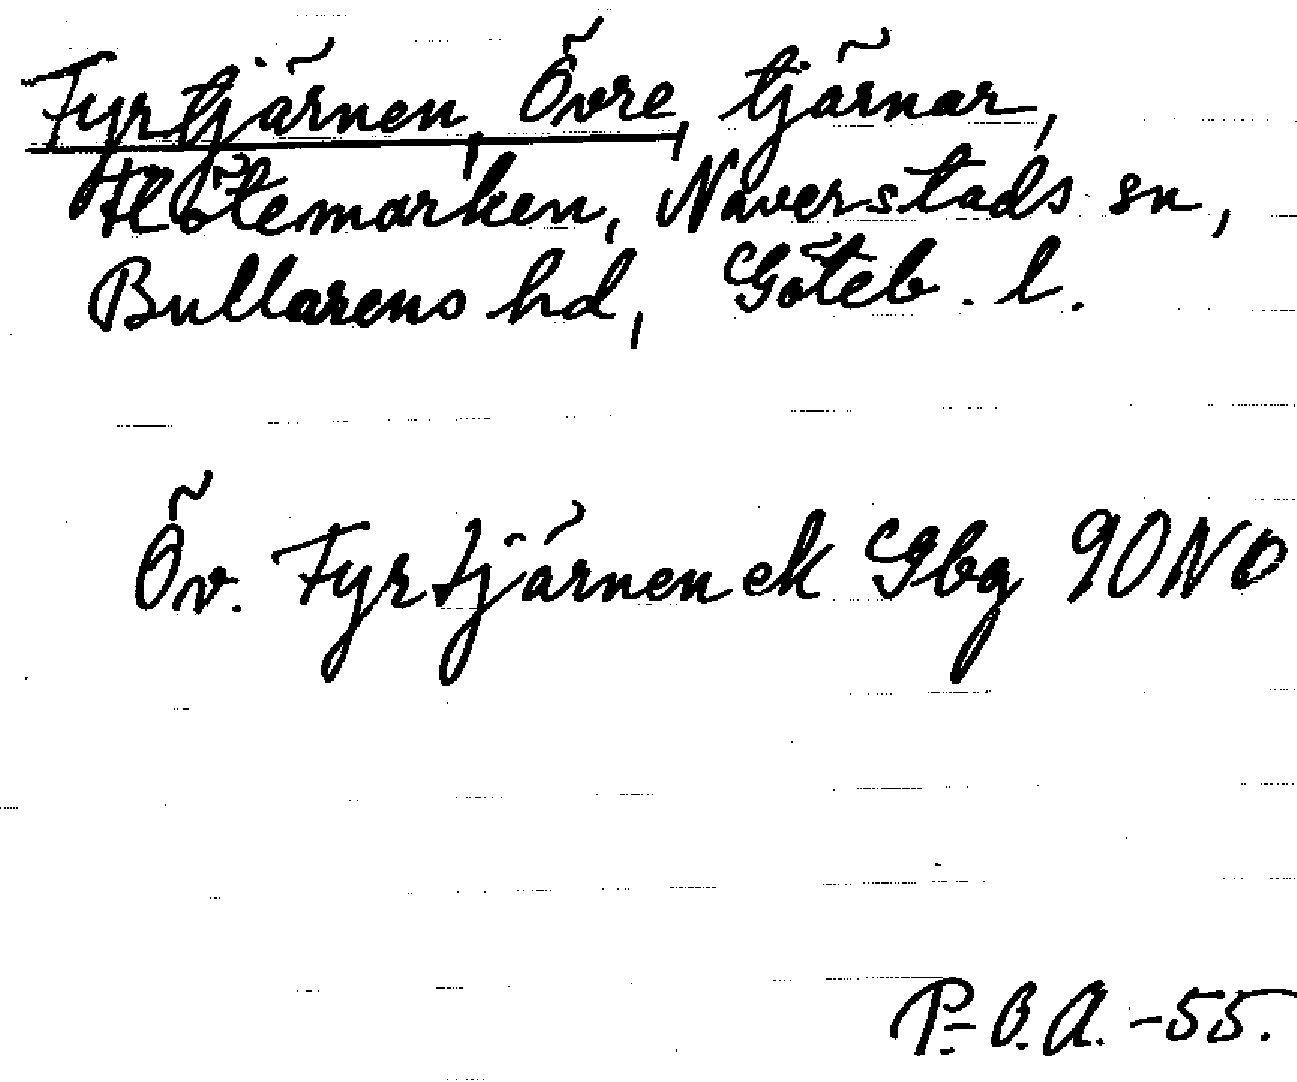 Fyrtjärnen, Övre, tjärnar,
Flötemarken, Naverstads sn,
Bullarens hd, Göteb. l.
Öv. Fyrtjärnen ek Gbg 90 NO
P.-O. A. -55.